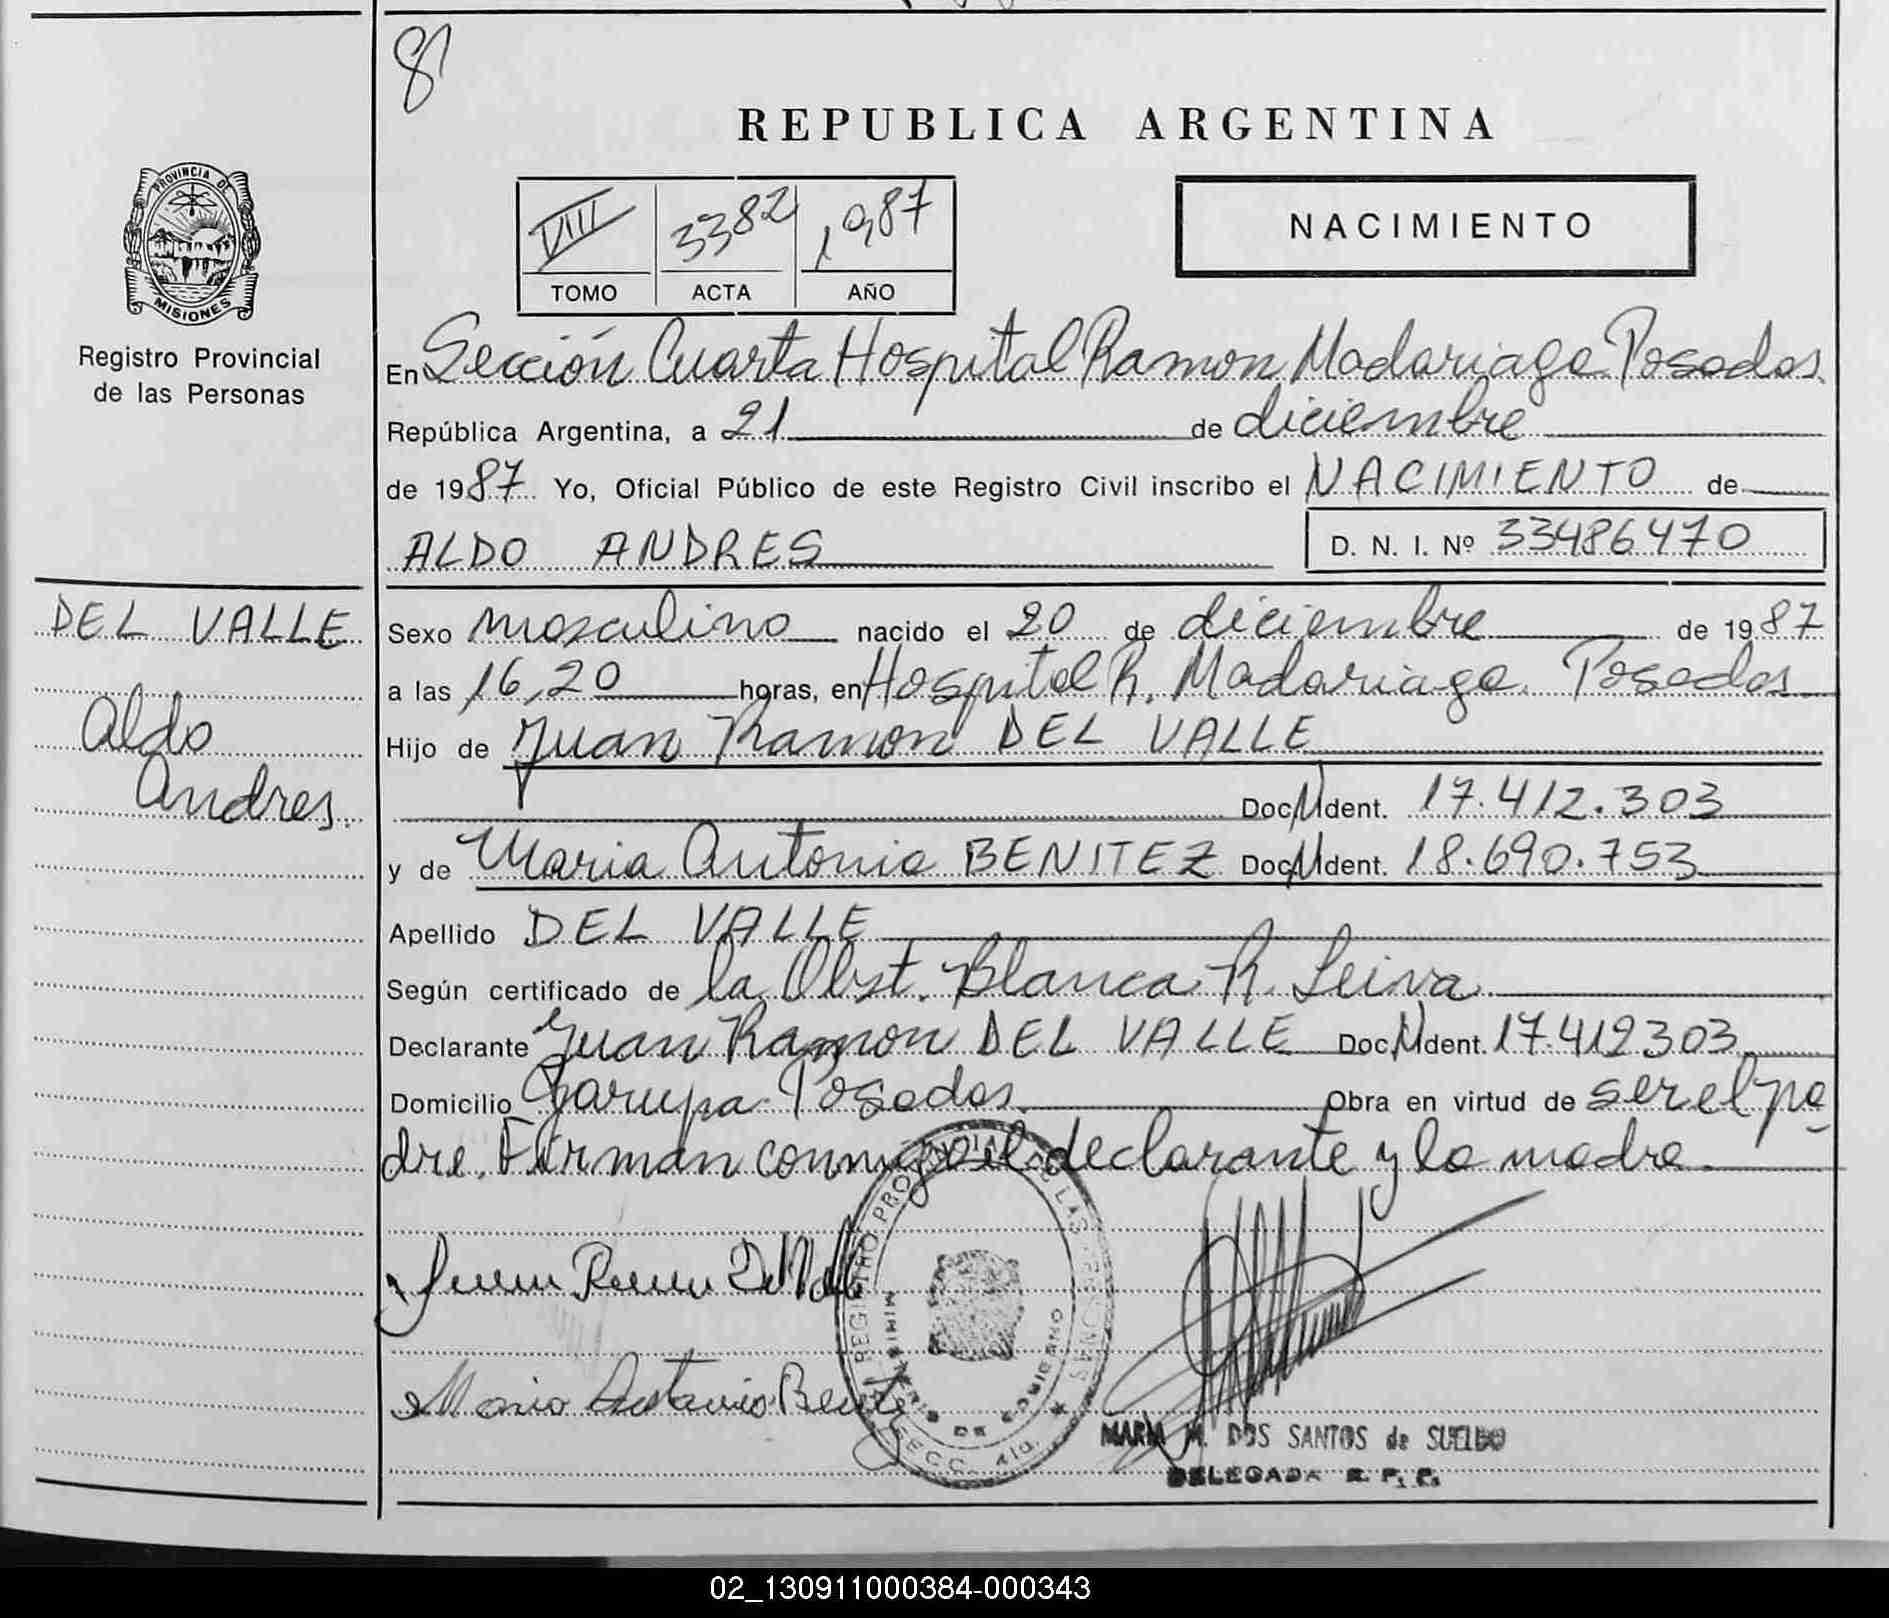 8
REPUBLICA ARGENTINA
PROVINCIA DE
MISIONES
Registro Provincial
de las Personas
VIII 3382 1987
TOMO ACTA AÑO
NACIMIENTO
En Sección Cuarta Hospital Ramon Madariaga Posadas
República Argentina, a 21 de diciembre
de 1987 Yo, Oficial Público de este Registro Civil inscribo el NACIMIENTO de
ALDO ANDRES
D. N. I. Nº 33486470
DEL VALLE
Aldo
Andres.
Sexo masculino nacido el 20 de diciembre de 1987
a las 16,20 horas, en Hospital R. Madariaga. Posadas
Hijo de Juan Ramon DEL VALLE
Doc. N Ident. 17.412.303
y de Maria Antonia BENITEZ Doc. N Ident. 18.690.753
Apellido DEL VALLE
Según certificado de la Obst. Blanca R. Leiva
Declarante Juan Ramon DEL VALLE Doc. N Ident. 17.412303
Domicilio Garupa-Posadas Obra en virtud de ser el pa-
dre. Firman conmigo el declarante y la madre.
Juan Ramon Del Valle
Maria Antonia Benitez
REGISTRO PROVINCIAL DE LAS PERSONAS
MINISTERIO DE GOBIERNO
SECC. 4ta.
MARIA M. DOS SANTOS de SUELDO
DELEGADA R. P. P.
02_130911000384-000343